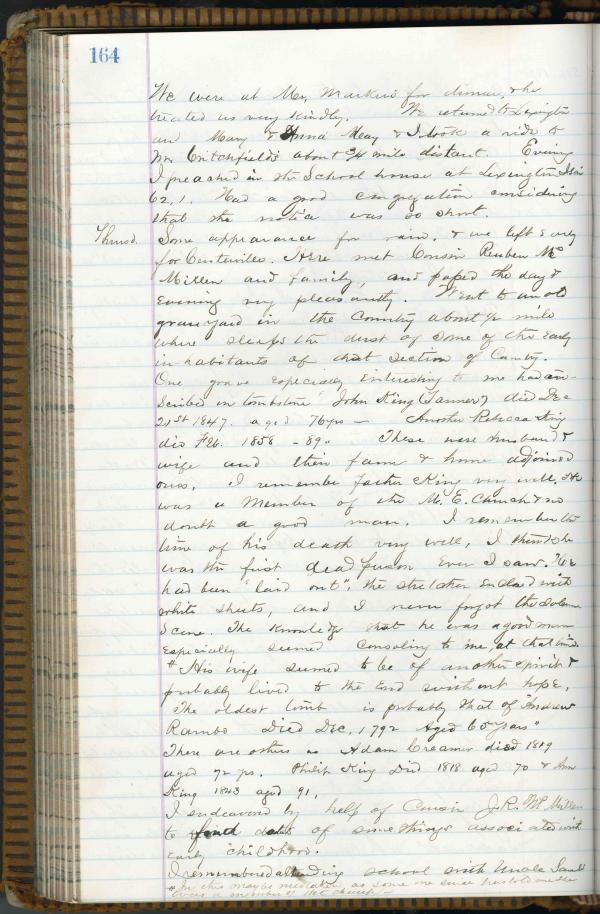 164
We were at Mr. Markers for dinner, & he
treated us very kindly. We returned to Lexington
and Mary & Anna May & I took a ride to
Mr Critchfield's about 3/4 mile distant. Evening
I preached in the School house at Lexington Isai
62,1. Had a good congregation considering
that the notice was so short.
Thursd. Some appearance for rain, & we left early
for Centerville. Here met Cousin Reuben Mc
Millen and family, and passed the day &
evening very pleasantly. Went to an old
graveyard in the Country about 1/2 mile
where sleeps the dust of some of the early
inhabitants of that section of County.
One grave especially interesting to me had in-
scribed on tombstone John King (Tanner) died Dec
21st 1847. aged 76 yrs — Another Rebecca King
die Feb. 1858 - 89" These were husband &
wife and their farm & home adjoined
ours. I remember father King very well. He
was a Member of the M. E. Church & no
doubt a good man. I remember the
time of his death very well, I think he
was the first dead person ever I saw. He
had been "laid out", the stretcher enclosed with
white sheets, and I never forgot the solemn
Scene. The knowledge that he was a good man
especially seemed consoling to me, at that time.
* His wife seemed to be of another spirit &
probably lived to the end without hope.
The oldest tomb is probably that of "Andrew
Rambo Died Dec, 1792 Aged 65 years"
There are others as Adam Creamer died 1819
aged 72 yrs. Philip King Died 1818 aged 70 & Ann
King 1843 aged 91,
I endeavored by help of Cousin J. R. McMillen
to find of some things associated with
early childhood.
I remembered attending school with Uncle Saml
* In this may be mistaken as some one since has told me she
was a member of the church —